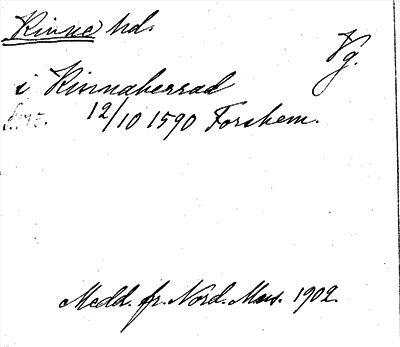 Kinne hds
Vg.
i Kinnaherrad
12/10 1590 Forshem.
Medd. fr. Nord. Mus. 1902.